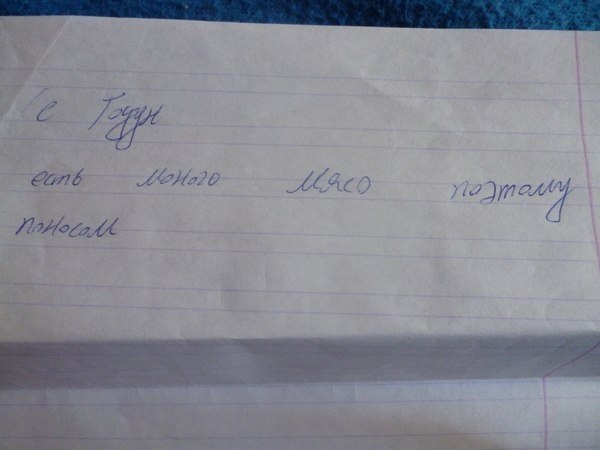 с Годун
есть моного мясо поэтому
поносом